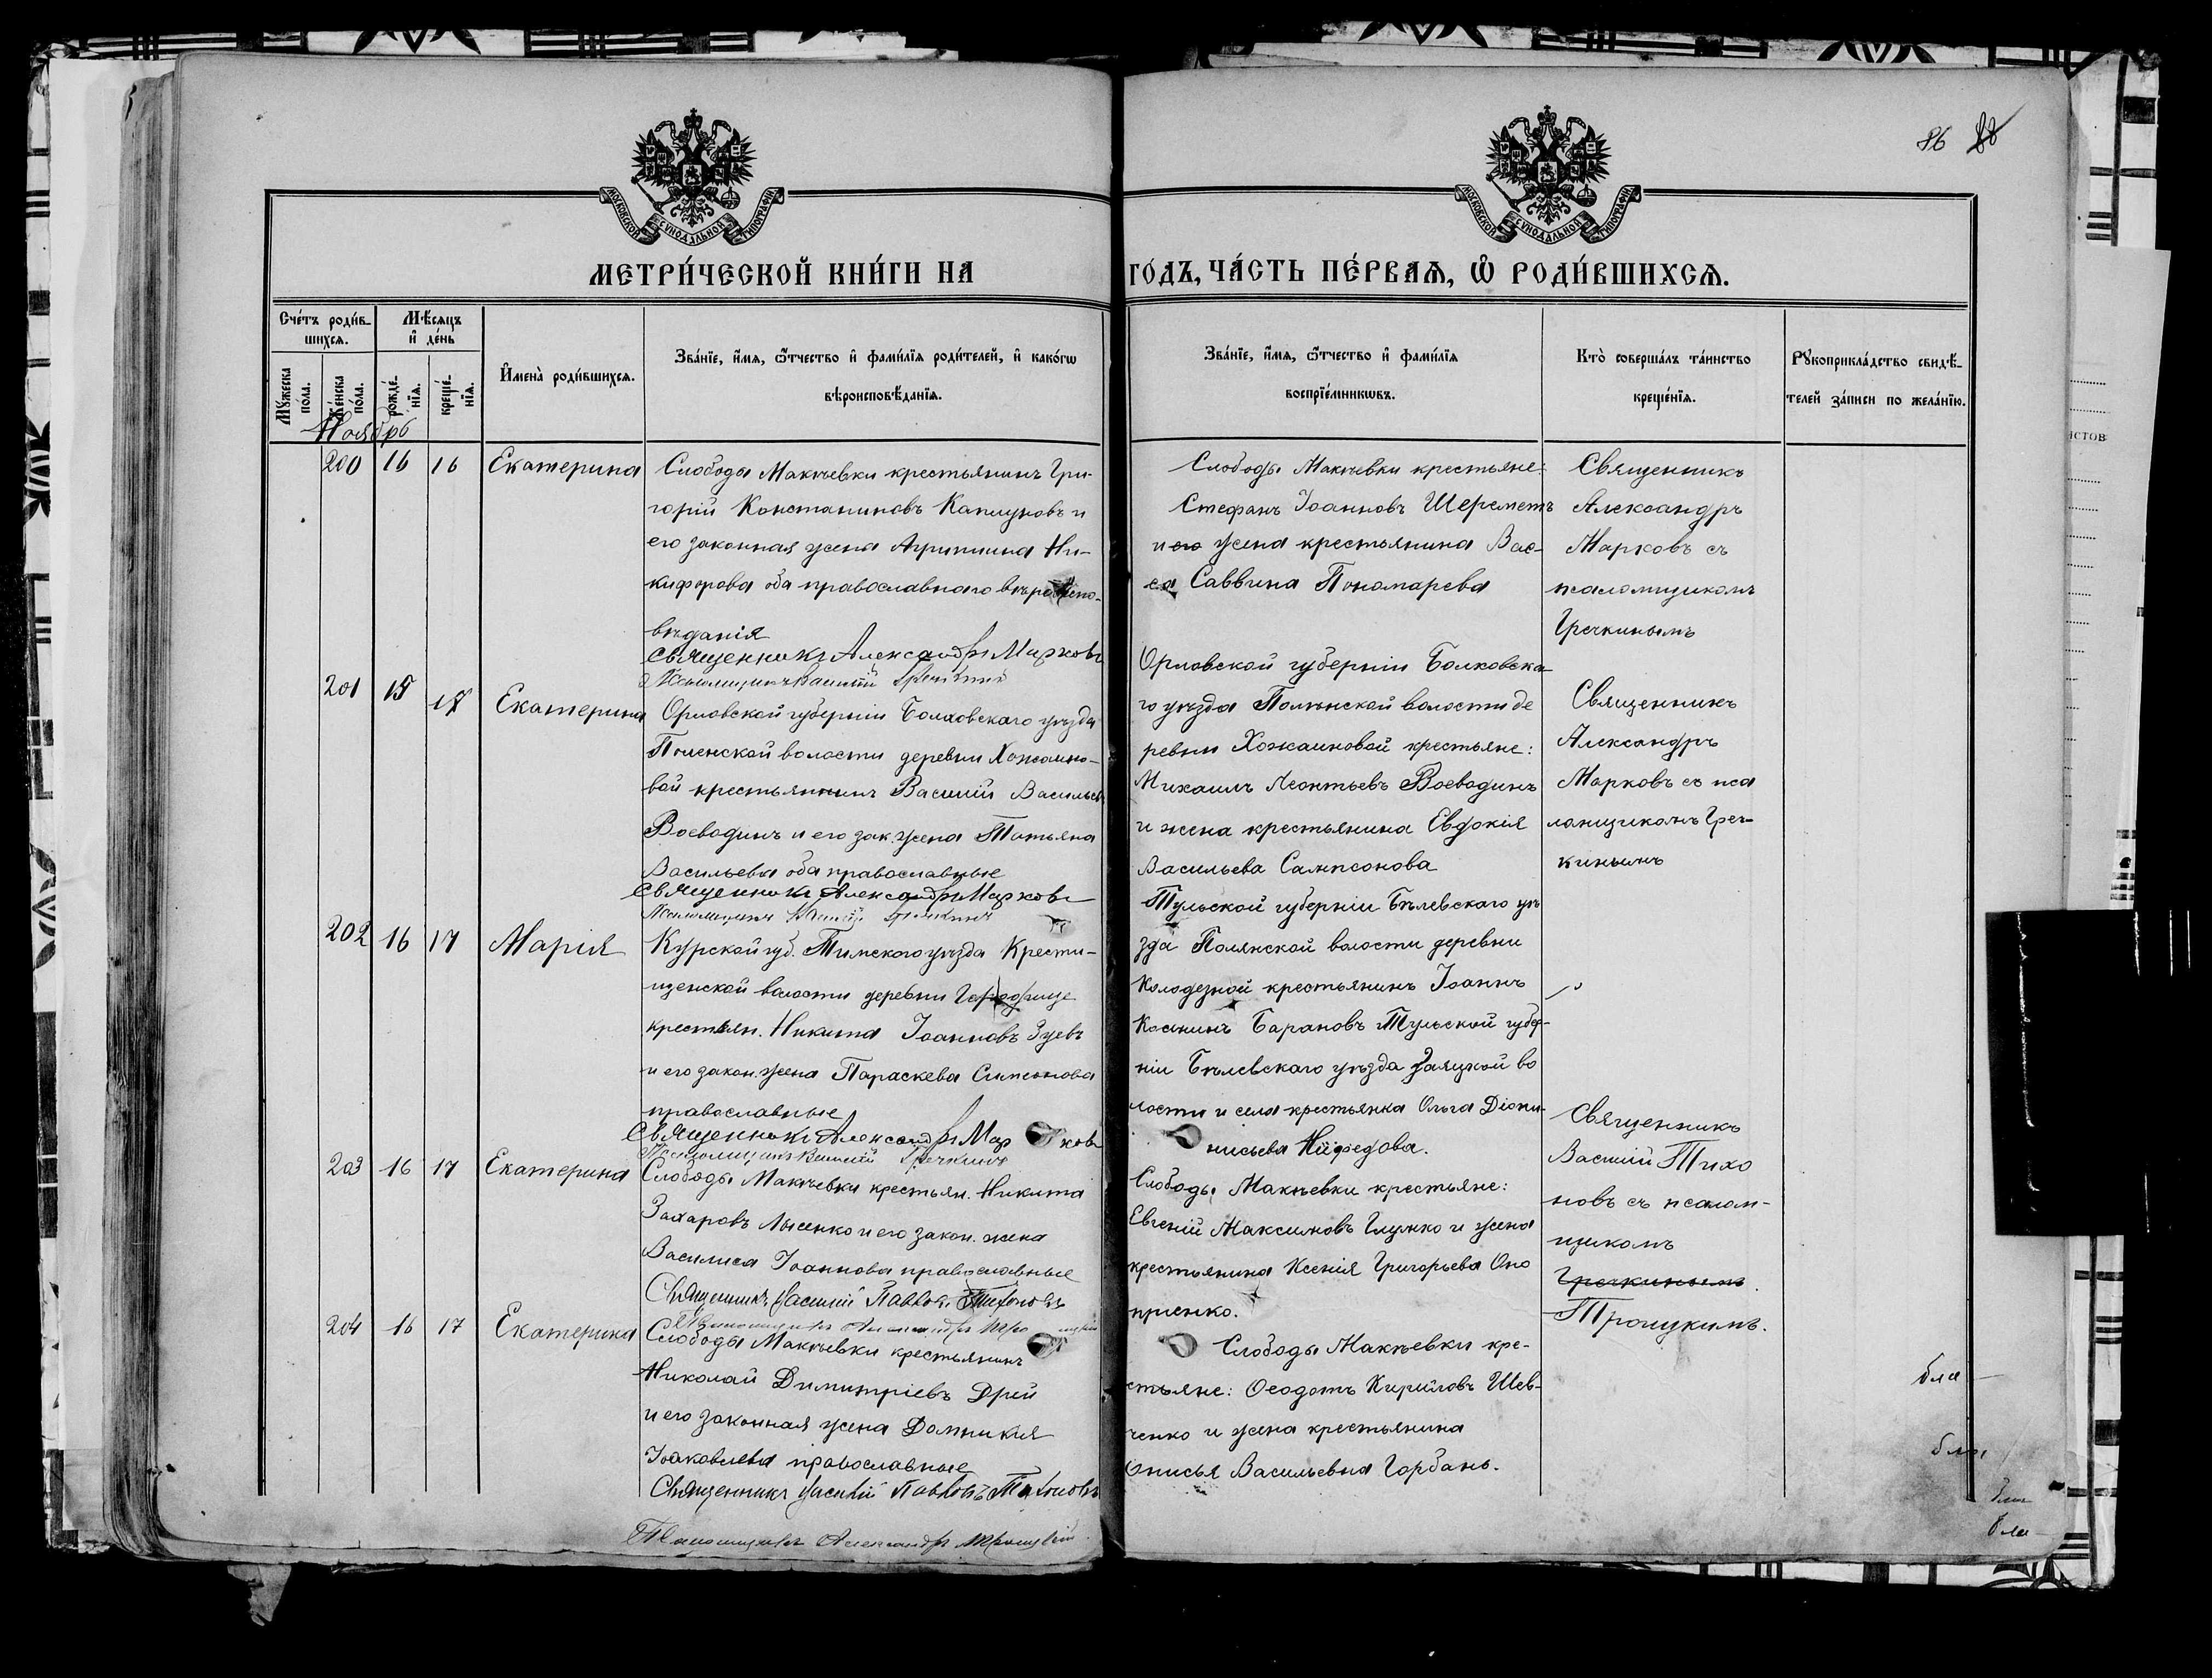 86 88
МОСКОВСКОЙ СУНОДАЛЬНОЙ ТИПОГРАФІИ
МОСКОВСКОЙ СУНОДАЛЬНОЙ ТИПОГРАФІИ
МЕТРИ́ЧЕСКОЙ КНИ́ГИ НА
ГО́ДЪ, ЧА́СТЬ ПЕ́РВАѦ, Ѡ РОДИ́ВШИХСѦ.
Сче́тъ роди́в-
шихсѧ.
Мѣ́сѧцъ
и де́нь
Мꙋ́жеска
по́ла.
Же́нска
по́ла.
рожде́-
нїѧ.
креще́-
нїѧ.
И҆мена̀ роди́вшихсѧ.
Зва́нїе, и҆́мѧ, ѻ҆́тчество и҆ фами́лїѧ роди́телей, и҆ како́гѡ
вѣроисповѣ́данїѧ.
Зва́нїе, и҆́мѧ, ѻ҆́тчество и҆ фами́лїѧ
воспрїе́мникѡвъ.
Кто̀ соверша́лъ та́инство
креще́нїѧ.
Рꙋкоприкла́дство свидѣ́-
телей за́писи по жела́нїю.
Ноябрь
200 16 16 Екатерина
Слободы Макѣевки крестьянинъ Гри-
горій Константиновъ Капшуковъ и
его законная жена Агрипина Ни-
кифорова оба православнаго вѣроиспо-
вѣданія
Священникъ Александръ Марковъ
Псаломщикъ Василій Гречкинъ
Слободы Макѣевки крестьяне:
Стефанъ Іоанновъ Шереметъ
и его жена крестьянина Вас-
са Саввина Пономарева
Священникъ
Александръ
Марковъ съ
псаломщикомъ
Гречкинымъ
201 15 17 Екатерина
Орловской губерніи Болховскаго уѣзда
Поленской волости деревни Хожаино-
вой крестьянинъ Василій Васильевъ
Воеводинъ и его зак. жена Татьяна
Васильева оба православные
Священникъ Александръ Марковъ
Псаломщикъ Василій Гречкинъ
Орловской губерніи Болковска
го уѣзда Полѣнской волости де
ревни Хожаиновой крестьяне:
Михаилъ Леонтьевъ Воеводинъ
и жена крестьянина Евдокія
Васильева Сампсонова
Священникъ
Александръ
Марковъ съ пса
ломщикомъ Греч-
кинымъ
202 16 17 Марія
Курской губ. Тимского уѣзда Крести-
щенской волости деревни Городище
крестьян. Никита Іоанновъ Зуевъ
и его закон. жена Параскева Симеонова
православные
Священникъ Александръ Марковъ
Псаломщикъ Василій Гречкинъ
Тульской губерніи Бѣлевскаго уѣ
зда Полянской волости деревни
Колодезной крестьянинъ Іоаннъ
Косминъ Барановъ Тульской губер-
ніи Бѣлевскаго уѣзда Заяцкой во
лости и села крестьянка Ольга Діони-
нисьева Нифедова.
203 16 17 Екатерина
Слободы Макѣевки крестьян. Никита
Захаровъ Лысенко и его закон. жена
Василиса Іоаннова православные
Священникъ Василій Павловъ Тихоновъ
Псаломщикъ Александръ
Слободы Макѣевки крестьяне:
Евгеній Максимовъ Глушко и жена
крестьянина Ксенія Григорьева Оно
приенко.
Священникъ
Василій Тихо
новъ съ псалом-
щикомъ
Гречкинымъ.
Троицкимъ.
204 16 17 Екатерина
Слободы Макѣевки крестьянинъ
Николай Димитріевъ Дрей
и его законная жена Домникія
Іоаковлева православные
Священникъ Василій Павловъ Тихоновъ
Псаломщикъ Александръ Троицкій
Слободы Макѣевки кре-
стьяне: Ѳеодотъ Кириловъ Шев-
ченко и жена крестьянина
Онисья Васильевна Горбань.